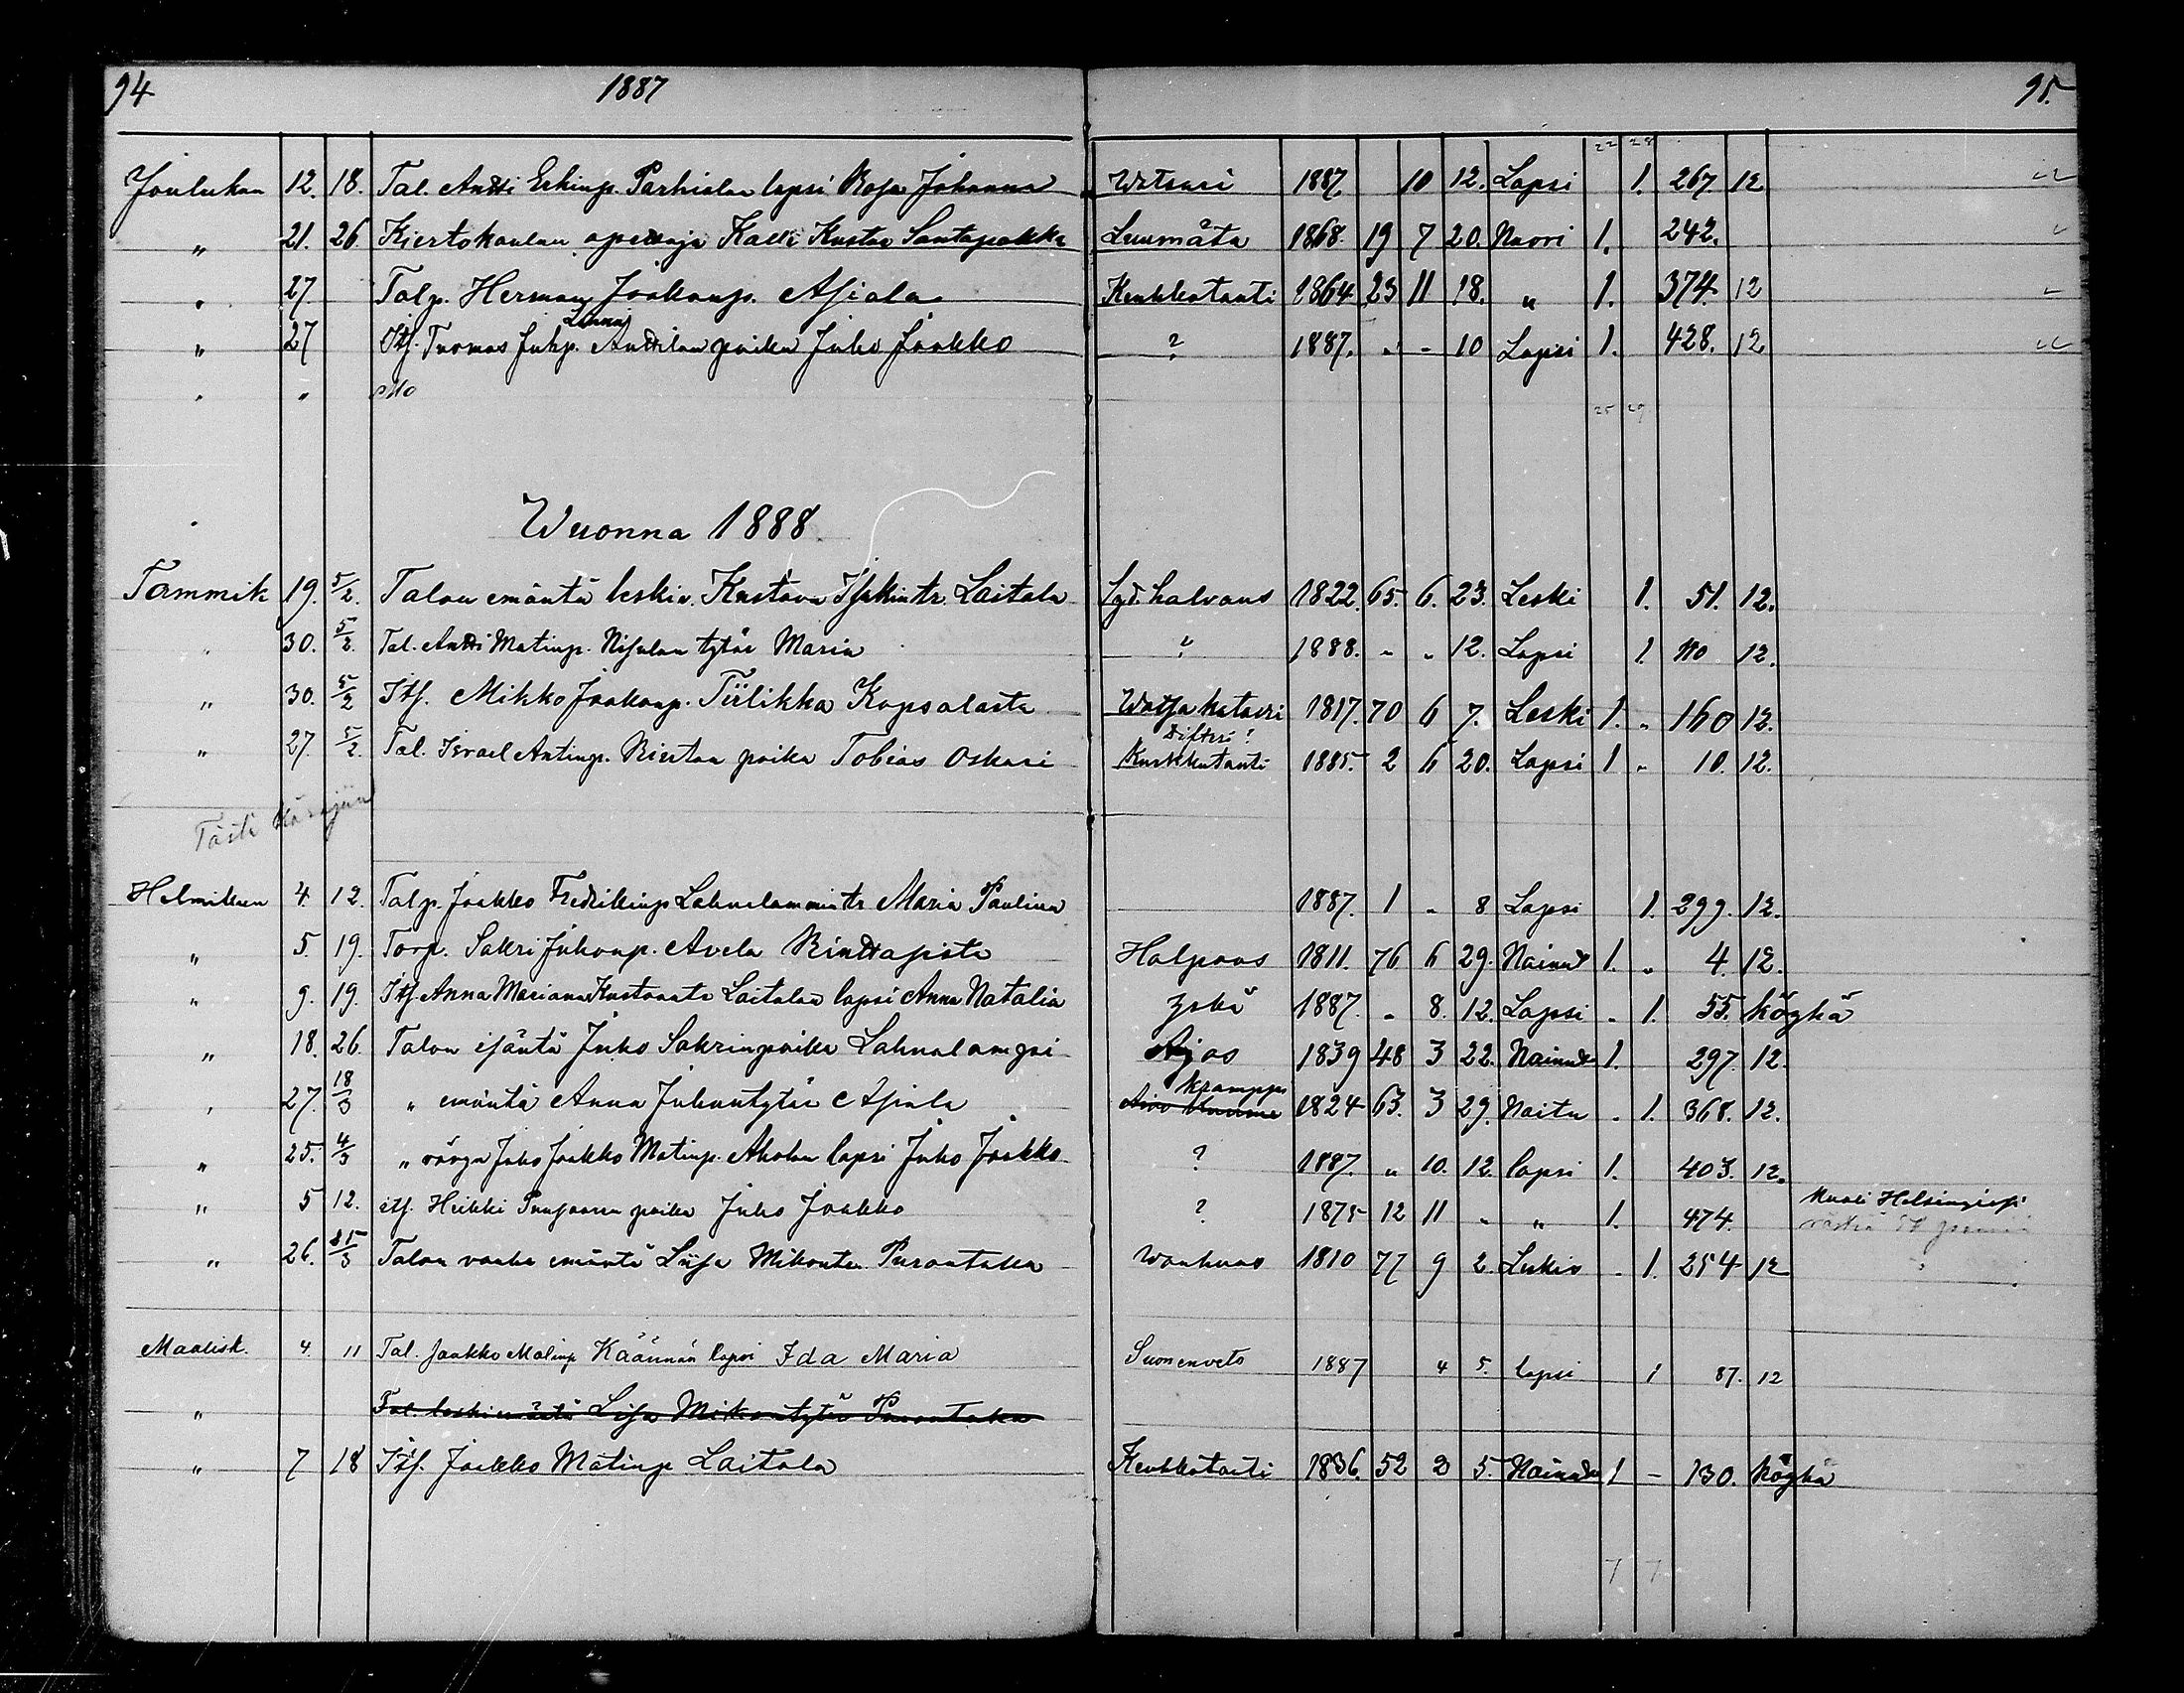 94 1887 95.
22 28
Joulukuu 12. 18. Tal. Antti Erkinp. Parhialan lapsi Rosa Johanna Watsuri 1887. 10 12. Lapsi 1. 267. 12
" 21. 26 Kiertokoulun opettaja Kalle Kustaa Santapakka Luumäta 1868. 19 7 20. Nuori 1. 242.
" 27 Talp. Herman Jaakonp. Asiala Keuhkotauti 1864 23 11 18. " 1. 374. 12
Lonnaj
" 27 Its. Tuomas Juhp. Anttilan poika Juho Jaakko ? 1887. " - 10 Lapsi 1. 428. 12
" " Mo
25 29
Wuonna 1888.
Tammik 19. 5/2. Talon emäntä leski Kustava Isakintr. Laitala Syd. halvaus 1822. 65. 6. 23. Leski 1. 51. 12.
" 30. 5/2. Tal. Antti Matinp. Nisulan tytär Maria ? 1888. " " 12. Lapsi 1. 110 12.
" 30. 5/2 Its. Mikko Jaakonp. Tiilikka Kopsalasta Watsakatarri 1817. 70 6 7. Leski 1. " 160 12.
Difteri?
" 27. 5/2. Tal. Israel Antinp. Rieston poika Tobias Oskari Kurkkutauti 1885. 2 6 20. Lapsi 1 " 10. 12.
Tästä käräjiin
Helmikuu 4 12. Talp. Jaakko Fredrikinp Lahnalammin tr Maria Paulina 1887. 1 " 8 Lapsi 1. 299. 12.
" 5. 19. Torp. Sakri Juhonp. Avela Rinttasista Halpaus 1811. 76 6 29. Nainut 1. " 4. 12.
" 9. 19. Its. Anna Mariana Kustaantr Laitalan lapsi Anna Natalia yskä 1887. " 8. 12. Lapsi - 1. 55. köyhä
" 18. 26. Talon isäntä Juho Sakrinpoika Lahnalampi Ajos 1839 48 3 22. Nainut 1. 297. 12.
Kramppi
" 27. 18/3 " emäntä Anna Juhontytär Asiala 1824 63. 3 29. Naitu . 1. 368. 12.
" 25. 4/3 " Juho Jaakko Matinp. Aholan lapsi Juho Jaakko ? 1887. " 10. 12. lapsi 1. 403. 12.
" 5 12. its. Heikki Puujaren poika Juho Jaakko ? 1875 12 11 " " 1. 474. Kuoli Helsingissä
" 26. 25/3 Talon vanha emäntä Liisa Mikontr. Purontaka Wanhuus 1810 77 9 2. Leski . 1. 254 12
Maalisk. 4. 11 Tal. Jaakko Matinp Käännän lapsi Ida Maria Suonenveto 1887 4 5. lapsi 1 87. 12
" Tal. leskiemäntä Liisa Mikontytär Purontaka
" 7 18 Its. Jaakko Matinp Laitala Keuhkotauti 1836. 52 2 5. Nainut 1 - 130. Köyhä
7 7